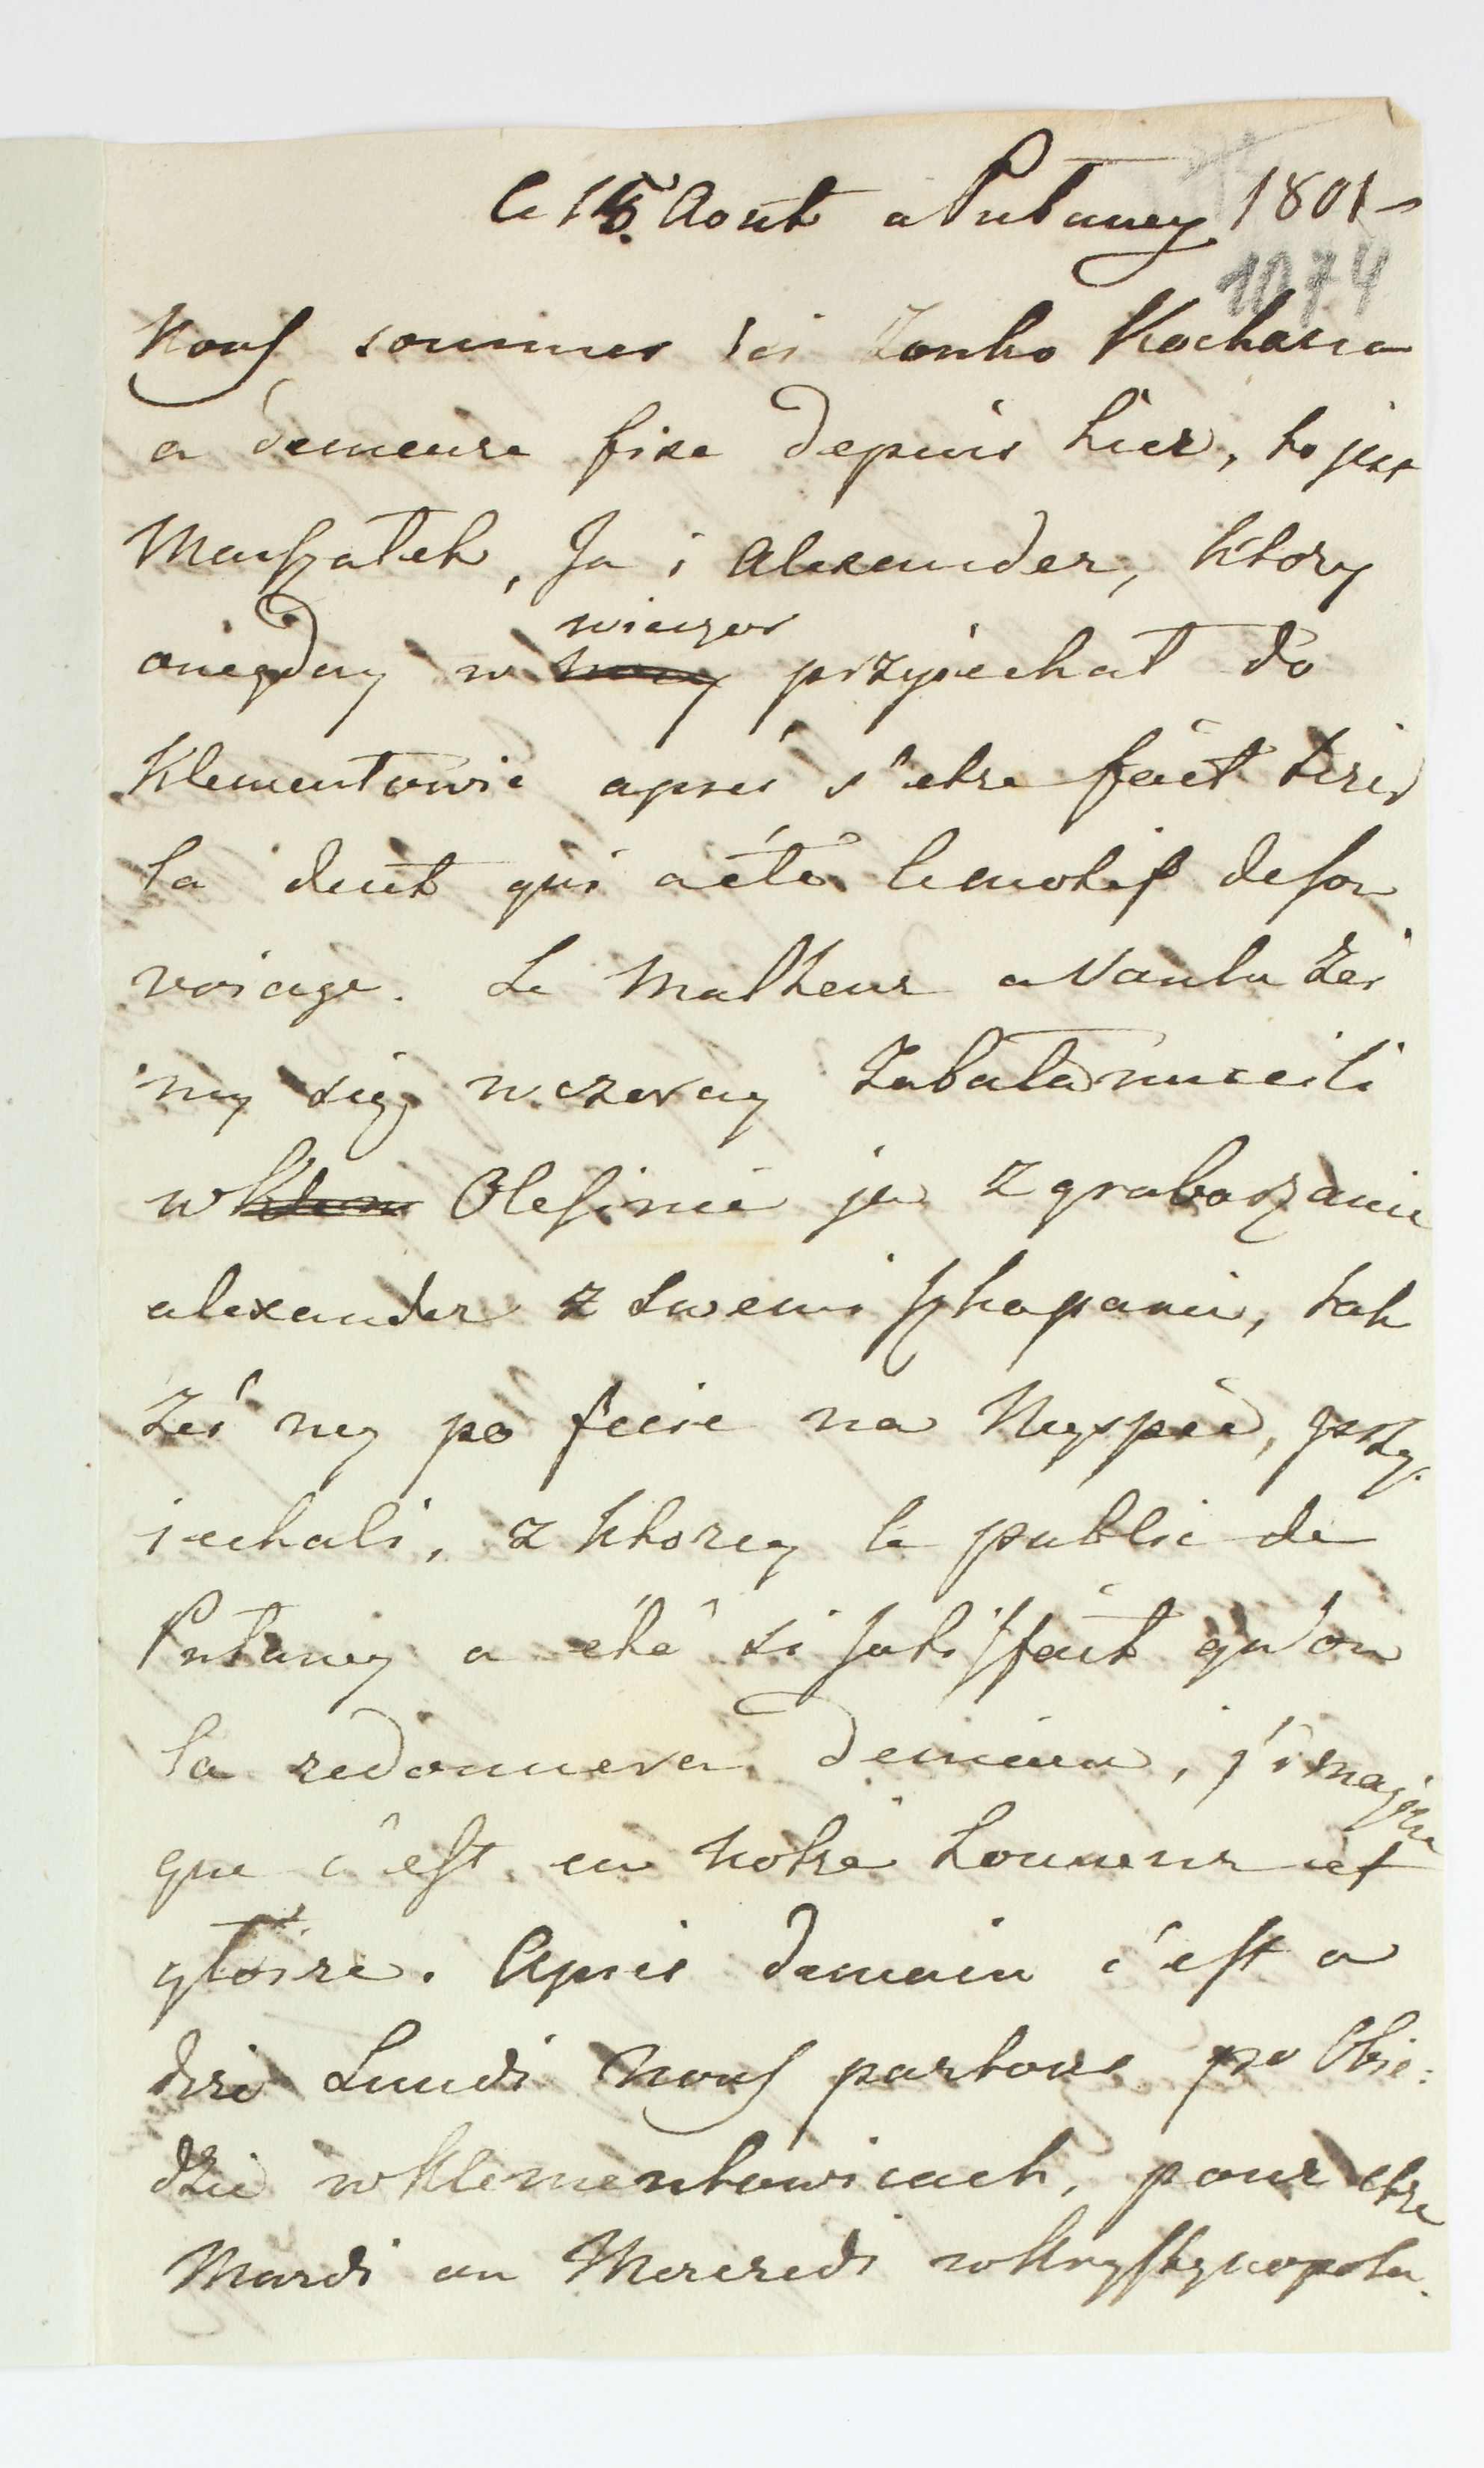 le 15. Août a Puławy 1801
1074
Nous sommes ici Zonko Kochana
a demeure fixe depuis hier, to jest
Marszałek, Ja i Alexander, ktory
onegday w wieczor przyiechał do
Klementowic après s'etre fait tirer
la dent qui a été le motif de son
voiage. Le Malheur a voulu żeś
my się wczoray zabałamucili
w Olesinie ja z graboszami
alexander z swemi szkapami, tak
żeś my po fecie na Kępie, przy-
iechali, z ktorey le public de
Puławy a eté si satisfait qu'on
la redonnera demain, j'imagine
que c'est en notre honneur et
gloire. Apres demain c'est a
dire Lundi nous partons po Obie:
dzie w Klementowicach, pour etre
Mardi ou Mercredi w Krystynopolu.